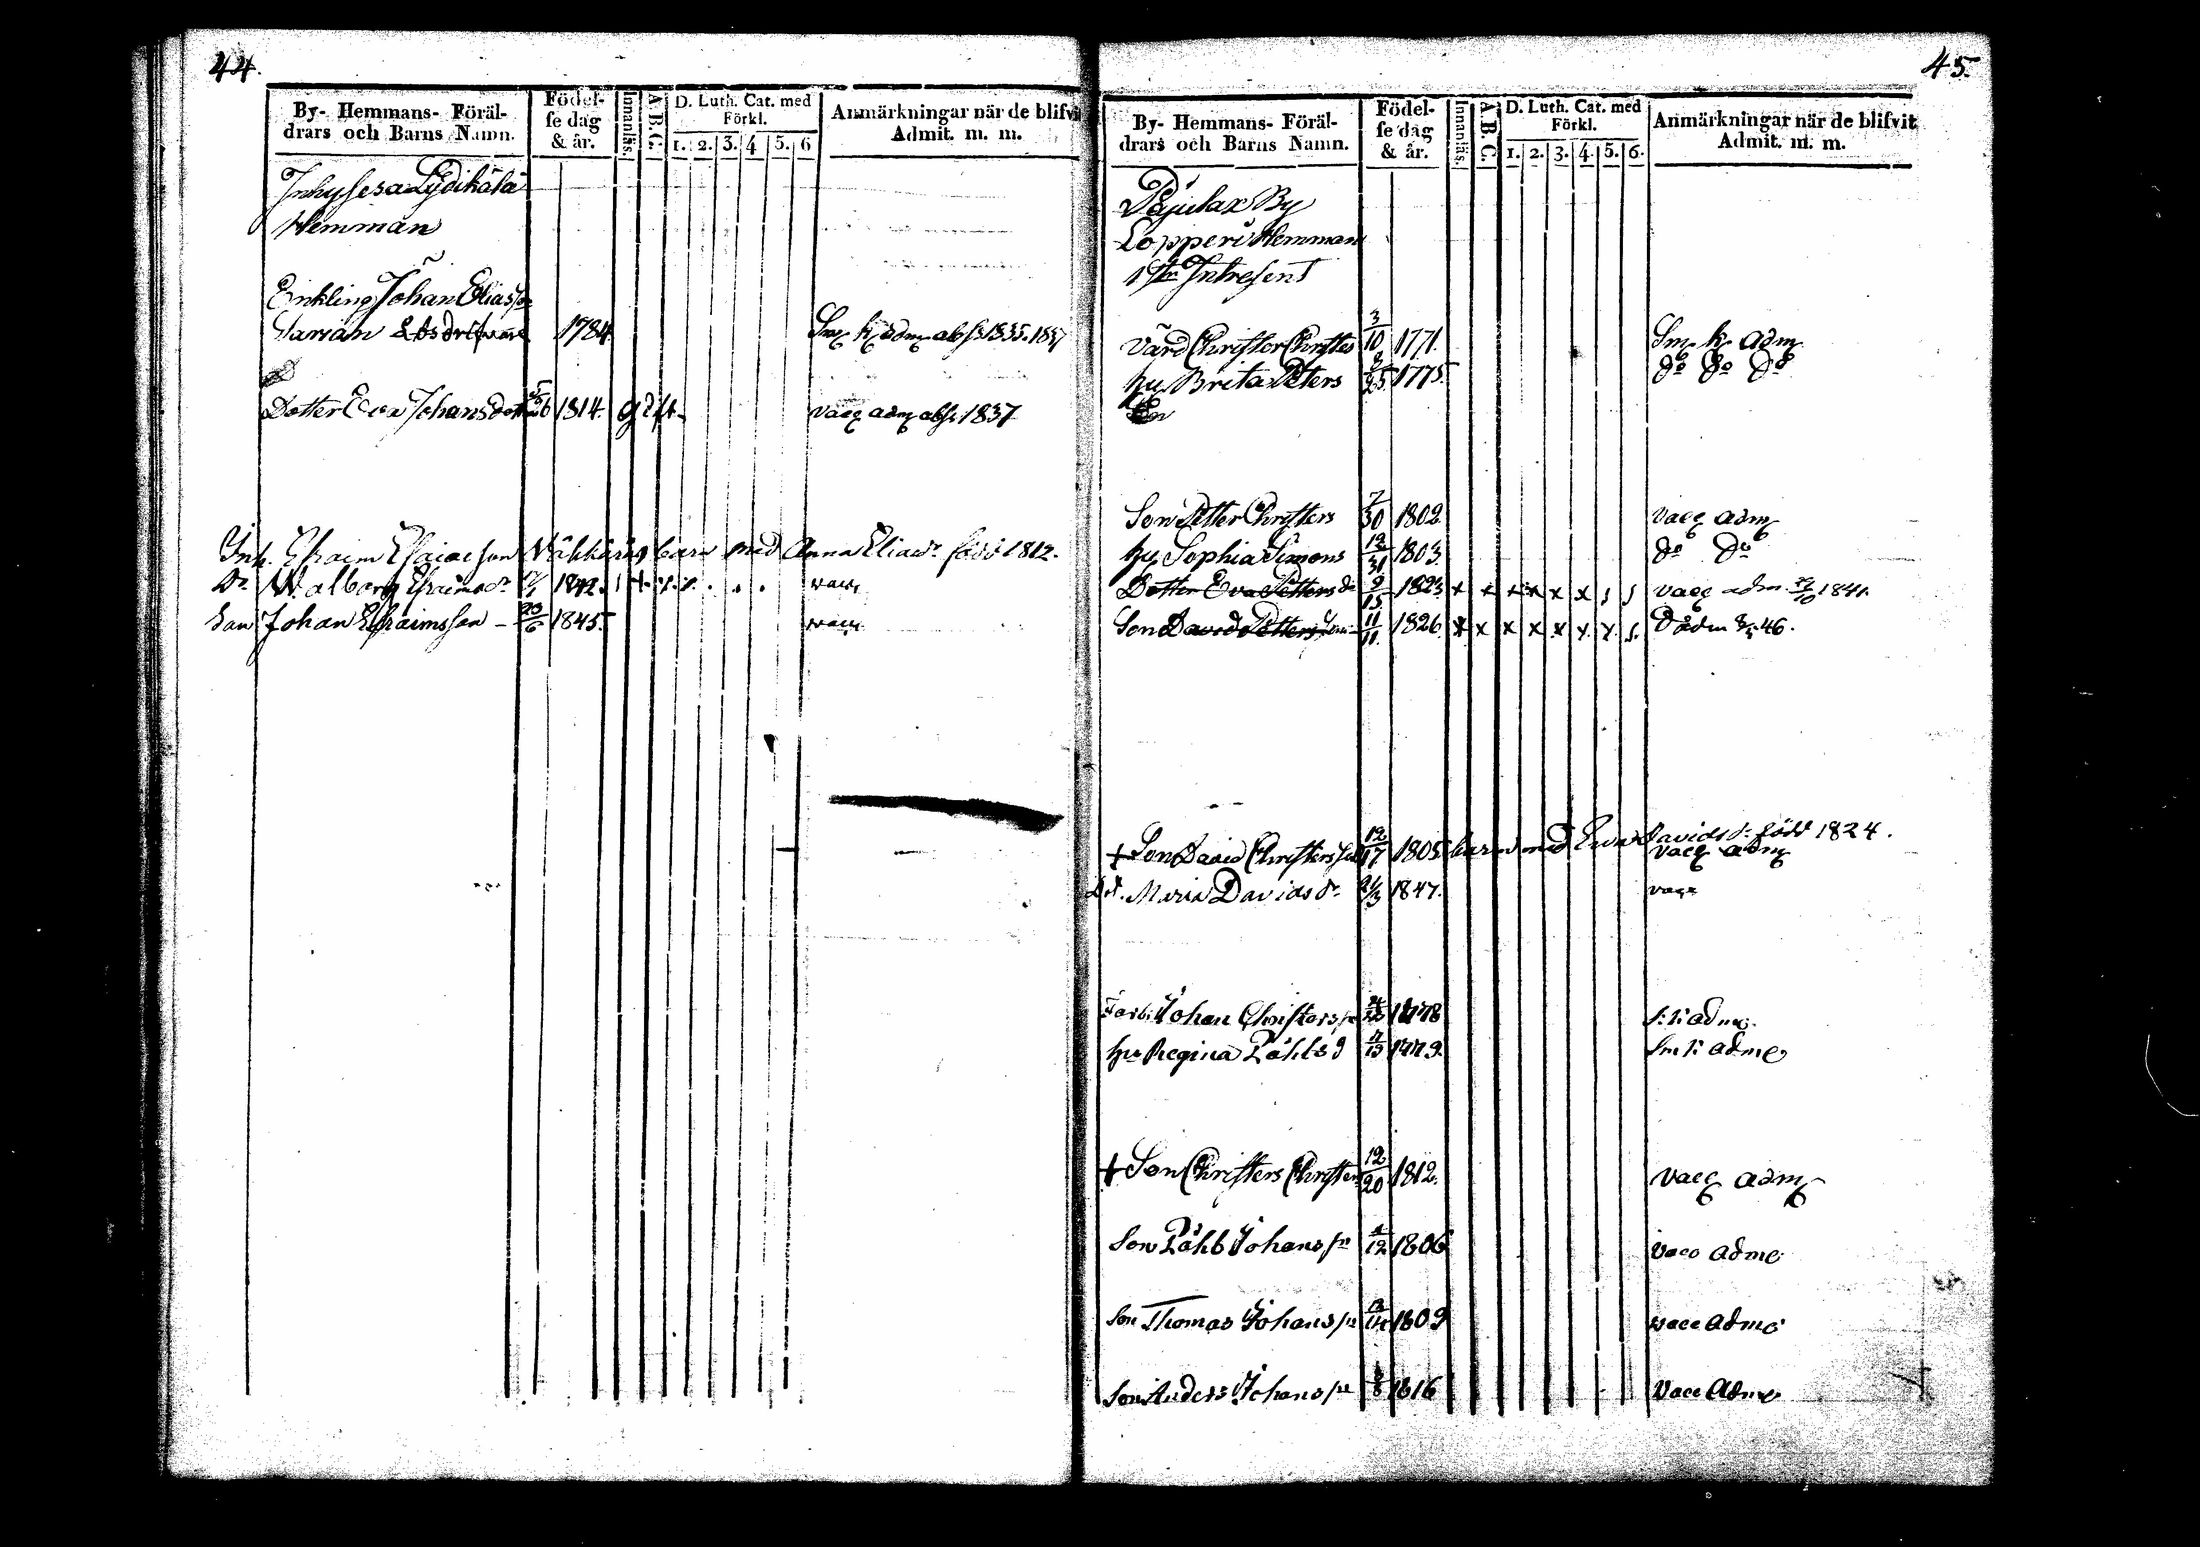 44.
By- Hemmans- Föräl-
drars och Barns Namn.
Födel-
se dag
& år.
Innanläs.
A.B.C.
D. Luth. Cat. med
Förkl.
1. 2. 3. 4 5. 6
Anmärkningar när de blifvit
Admit. m. m.
Inhyses a Lydikälä
Hemman
Enkling Johan Eliasson
1784. Sm k adm abs 1835. 1837
Dotter Eva Johansdotter 1814. gift. vacc adm abs 1837
Inh. Efraim Esaiasson barn med Anna Eliasdr född 1812.
Dr Walborg Efraimsdr 1842. vacc
Son Johan Efraimsson 23/6 1845. vacc
45.
By- Hemmans- Föräl-
drars och Barns Namn.
Födel-
se dag
& år.
Innanläs.
A.B.C.
D. Luth. Cat. med
Förkl.
1. 2. 3. 4. 5. 6.
Anmärkningar när de blifvit
Admit. m. m.
Påjulax By
Lopperi Hemman
1sta Intresent
Värd Christer Christers 3/10 1771. Sm. k. adm
hu Brita Peters 1775. do do do
Son Petter Christers 7/30 1802 vacc adm
hu Sophia Simons 12/31 1803 do do
Dotter Eva Petters dr 9/15 1823 x x x x x x vacc adm 1841.
Son David Petters son 11/11. 1826. x x x x x x x adm 46.
+ Son David Christersson 12/17 1805 barn med Eva Davidsdr född 1824.
vacc adm
Dot. Maria Davidsdr 21/3 1847. vacc
Johan Christerss 1778 s. k. adm.
hu Regina Påhls d 1779. Sm k adm
+ Son Christers Christers 12/20 1812. vacc adm
Son Påhl Johans sn 1806 vacc adm
Son Thomas Johans sn 1809 vacc adm
Son Anders Johans sn 1816 vacc adm